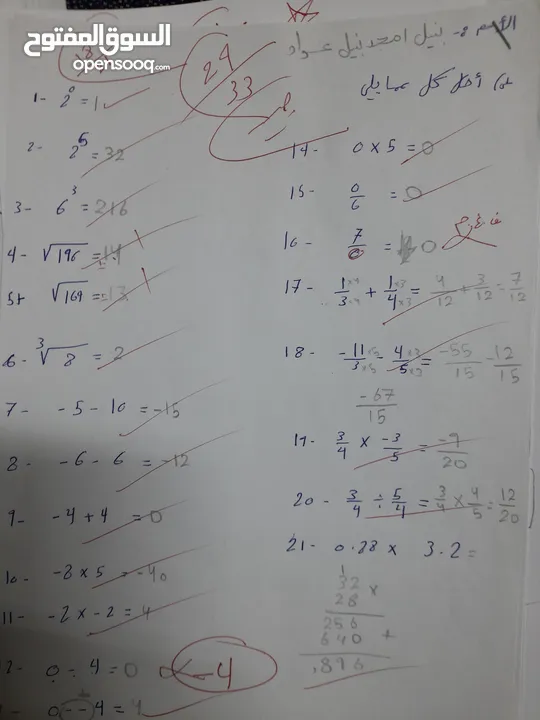 السوق المفتوح
opensooq.com
الاسم :- نبيل امجد نبيل عواد
24
33
1- 2⁰ = 1
2- 2⁵ = 32
3- 6³ = 216
4- √196 = 14
5- √169 = 13
6- ³√8 = 2
7- -5 - 10 = -15
8- -6 - 6 = -12
9- -4 + 4 = 0
10- -8 × 5 = -40
11- -2 × -2 = 4
2- 0 - 4 = 0 -4
0 - - 4 = 4
14- 0 × 5 = 0
15- 0/6 = 0
16- 7/0 = 0
17- 1/3 ×4 ×4 + 1/4 ×3 ×3 = 4/12 + 3/12 = 7/12
18- -11/3 ×5 ×5 - 4/5 ×3 ×3 = -55/15 - 12/15
-67/15
19- 3/4 × -3/5 = -9/20
20- 3/4 ÷ 5/4 = 3/4 × 4/5 = 12/20
21- 0.28 × 3.2 =
1
32 ×
28
256
640 +
.896